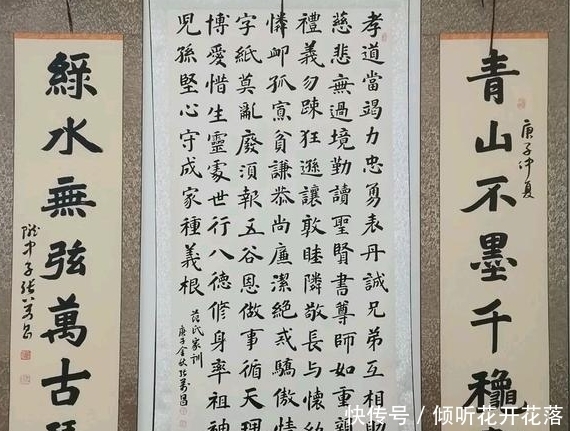 青山不墨千龝
庚子仲夏
孝道當竭力忠勇表丹誠兄弟互相助
慈悲無過境勤讀聖賢書尊師如重親
禮義勿踈狂遜讓敦睦隣敬長與懷幼
憐卹孤寡貧謙恭尚廉潔絕戒驕傲情
字紙莫亂廢須報五谷恩做事循天理
博愛惜生靈處世行八德修身率祖神
兒孫堅心守成家種義根
范氏家训
庚子金秋张萬昌
綠水無弦萬古
隴中子张萬昌
快传号/倾听花开花落